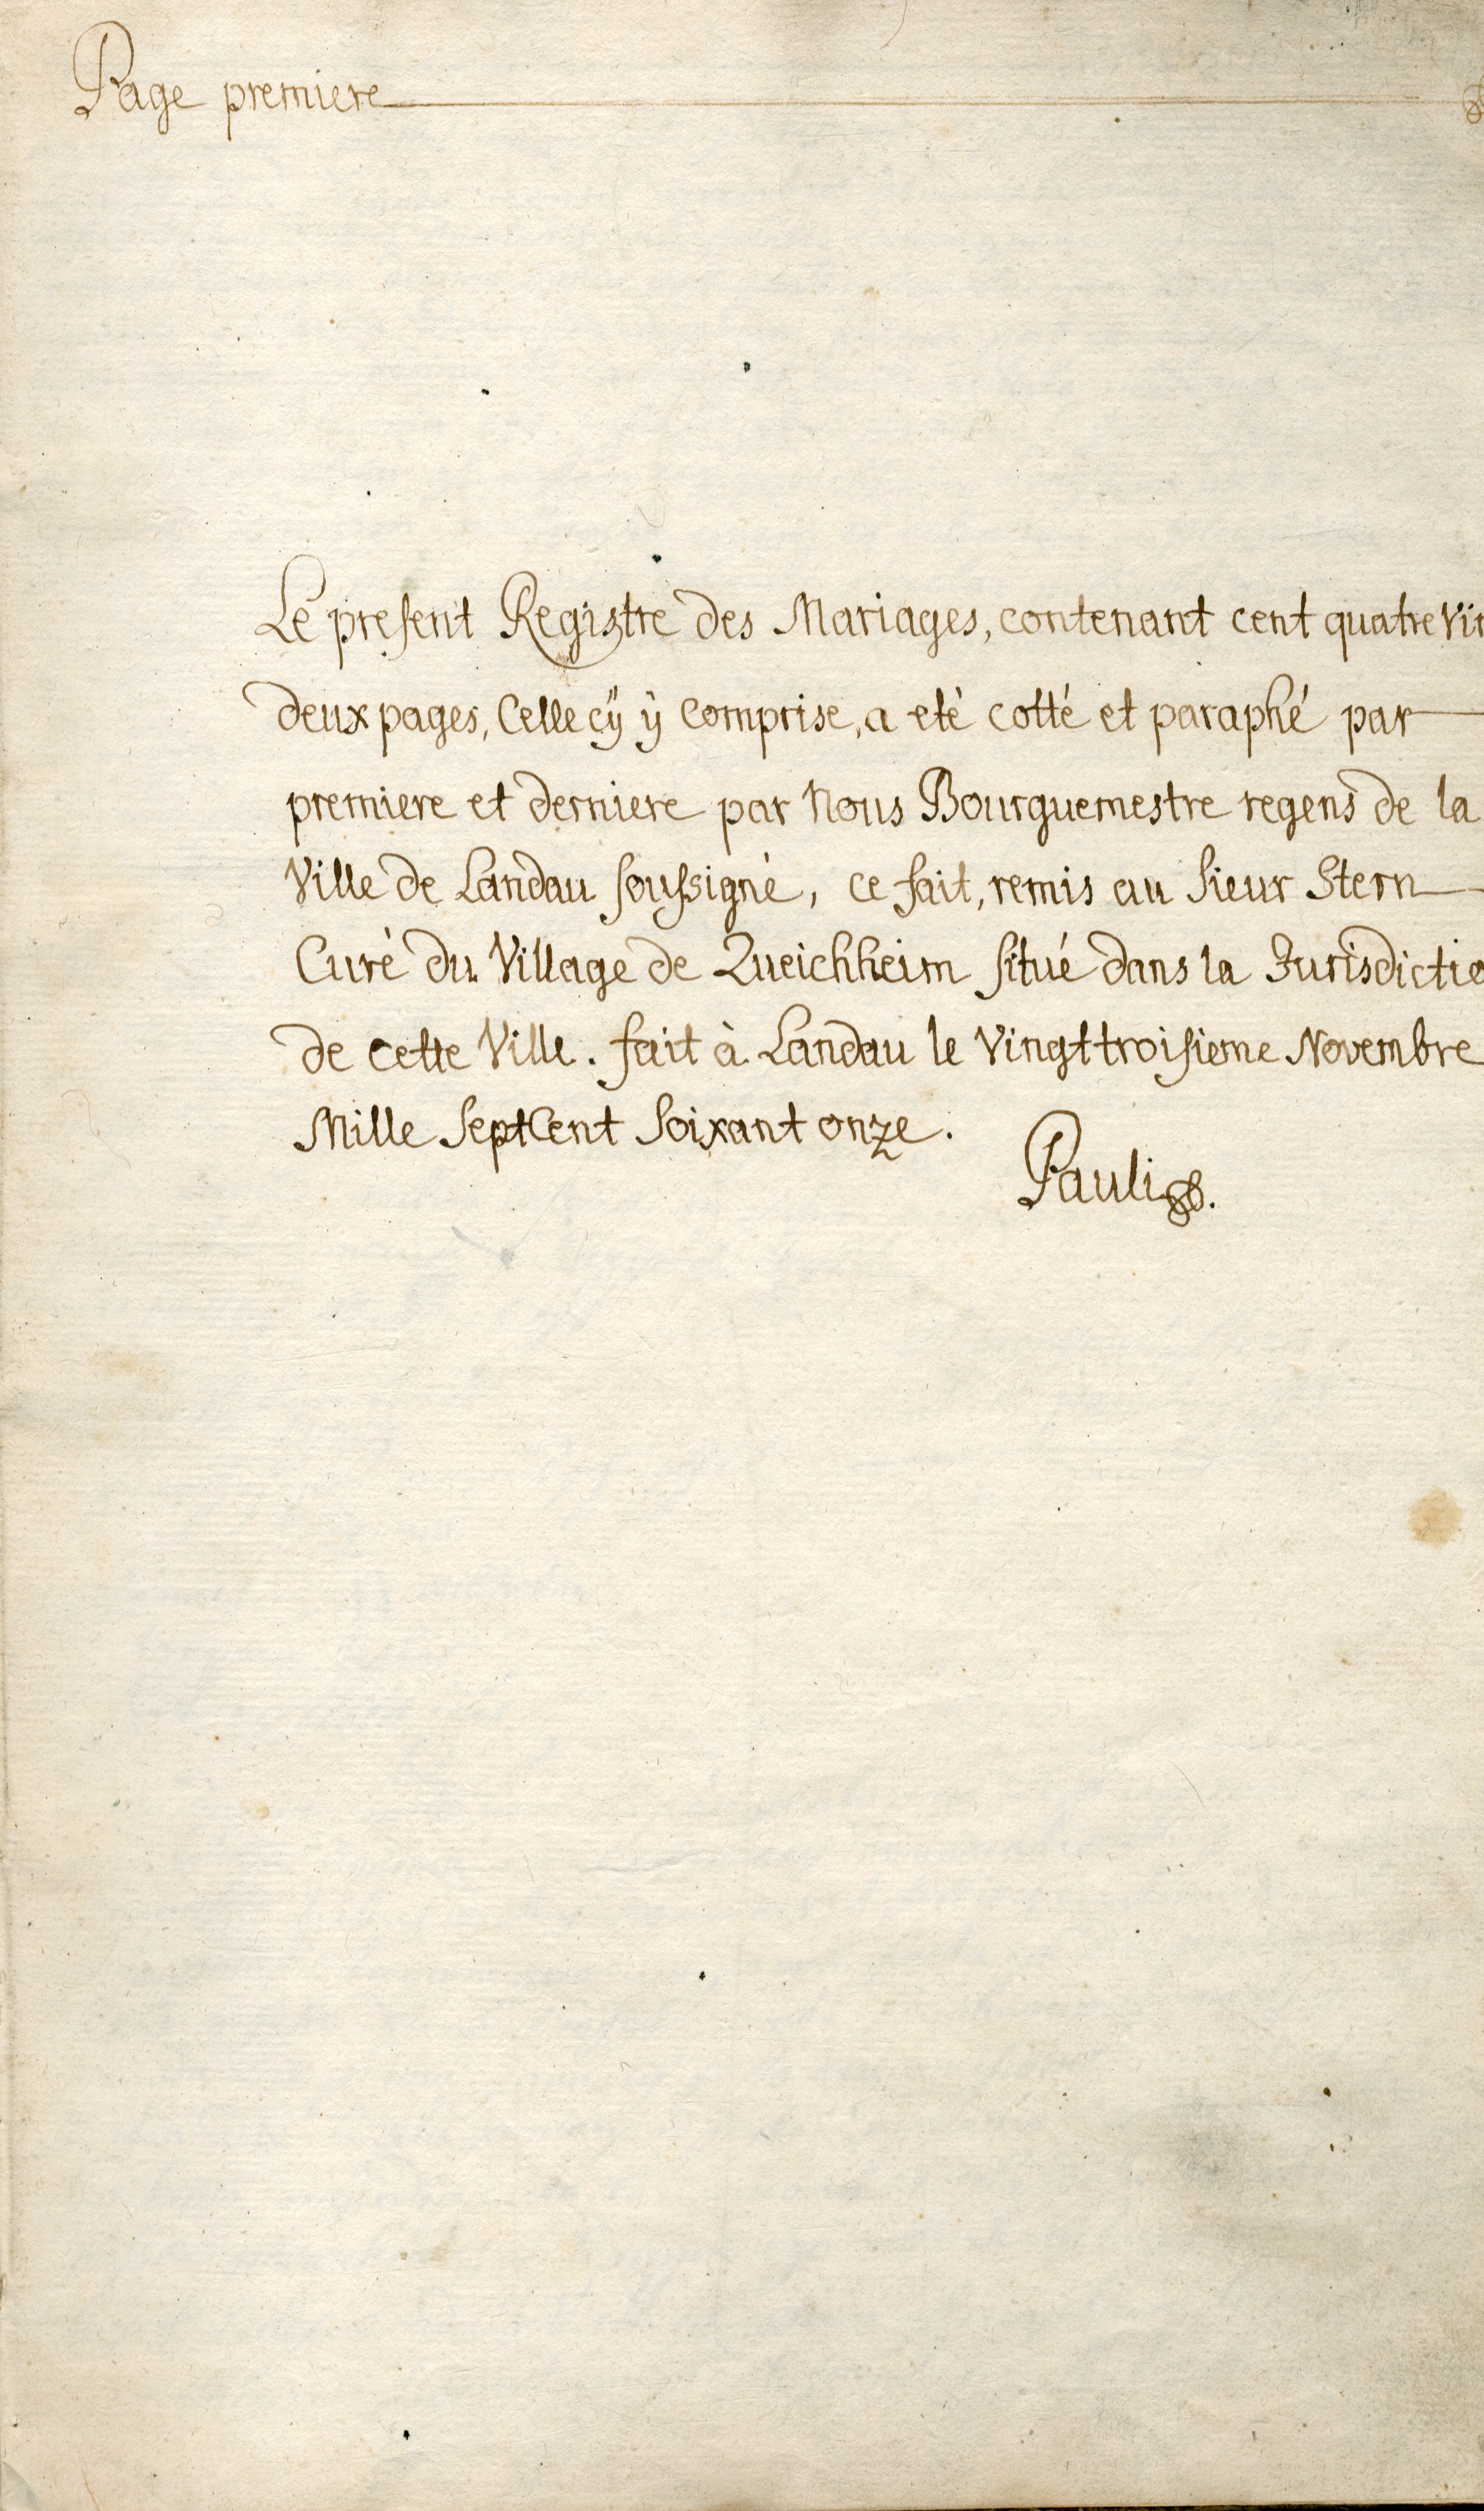 Page premiere
Le present Registre des Mariages, contenant cent quatre Vin
deux pages, Celle cÿ ÿ Comprise, a eté cotté et paraphé par
premiere et derniere par Nous Bourguemestre regens de la
Ville de Landau soussigné, ce fait, remis au Sieur Stern
Curé du Village de Queichheim situé dans la Jurisdictio
de cette Ville. fait à Landau le Vingttroisieme Novembre
Mille SeptCent Soixant onze.
Pauli